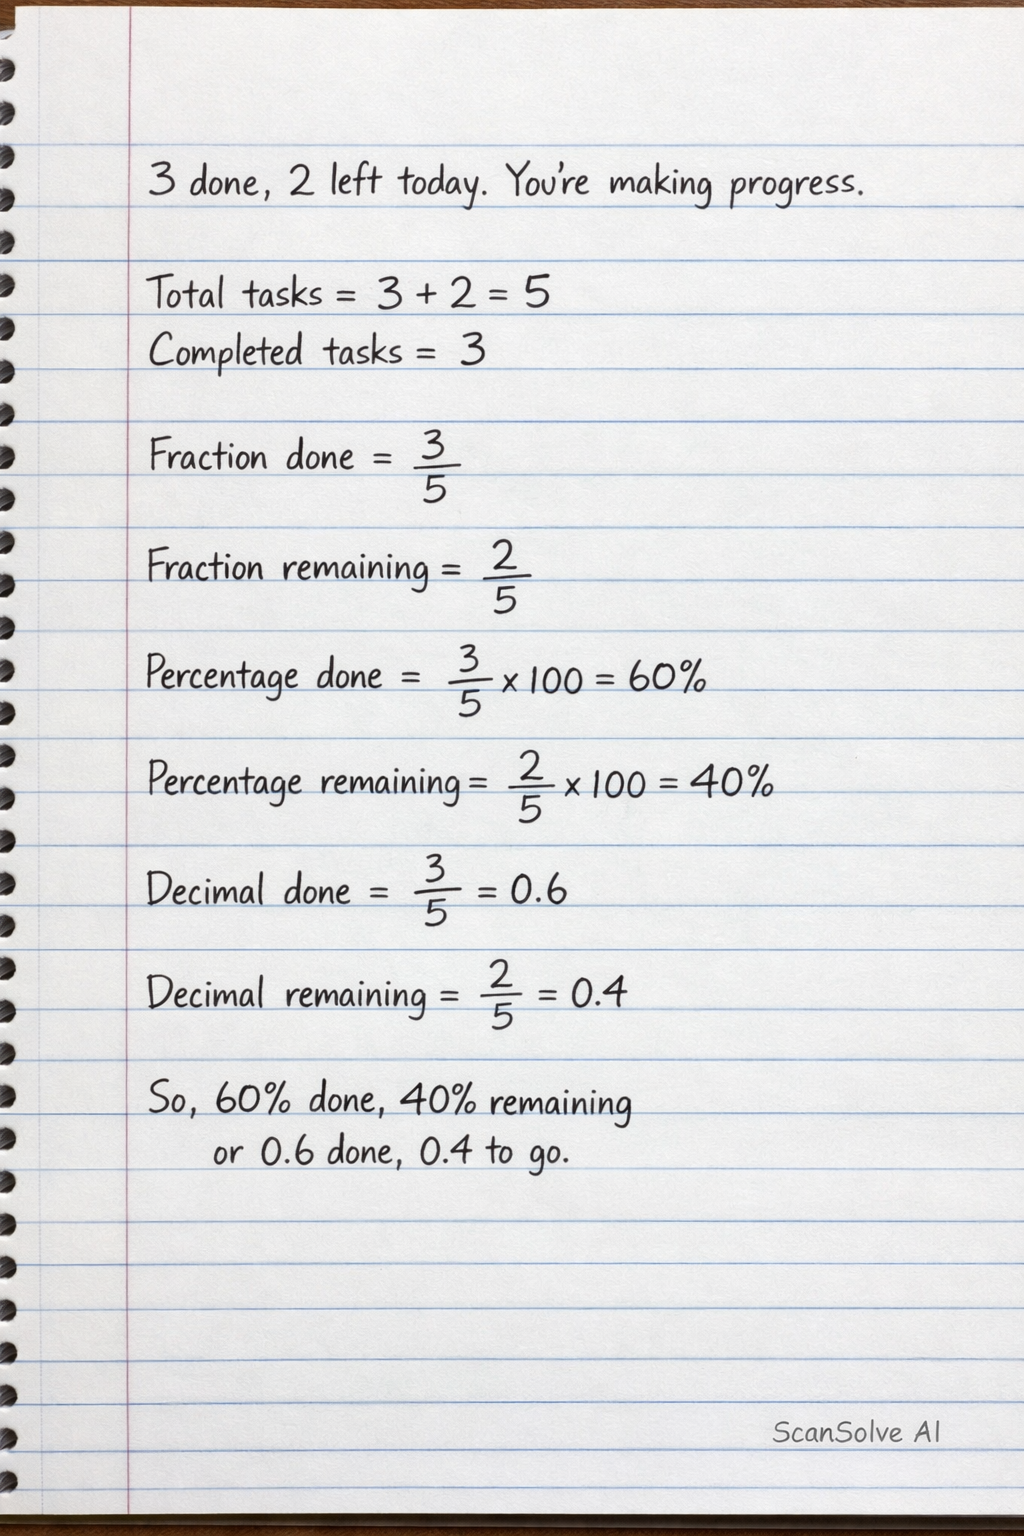 3 done, 2 left today. You're making progress.
Total tasks = 3 + 2 = 5
Completed tasks = 3
Fraction done = 3/5
Fraction remaining = 2/5
Percentage done = 3/5 x 100 = 60%
Percentage remaining = 2/5 x 100 = 40%
Decimal done = 3/5 = 0.6
Decimal remaining = 2/5 = 0.4
So, 60% done, 40% remaining
or 0.6 done, 0.4 to go.
ScanSolve AI